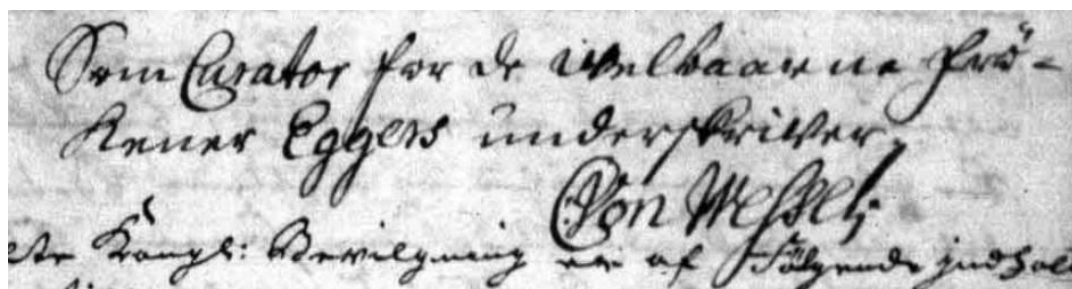 Som Curator for de welbaarne Frö-
kener Eggers underskriver
Von Wessel:
Kongl: Bevilgning er af Fölgende indhold